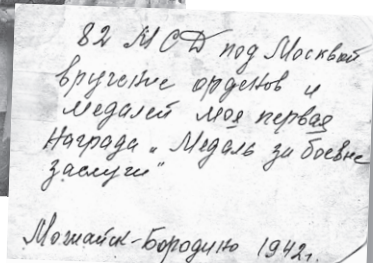 82 МСД под Москвой
вручение орденов и
медалей моя первая
награда „Медаль за боевые
заслуги"
Можайск-Бородино 1942г.